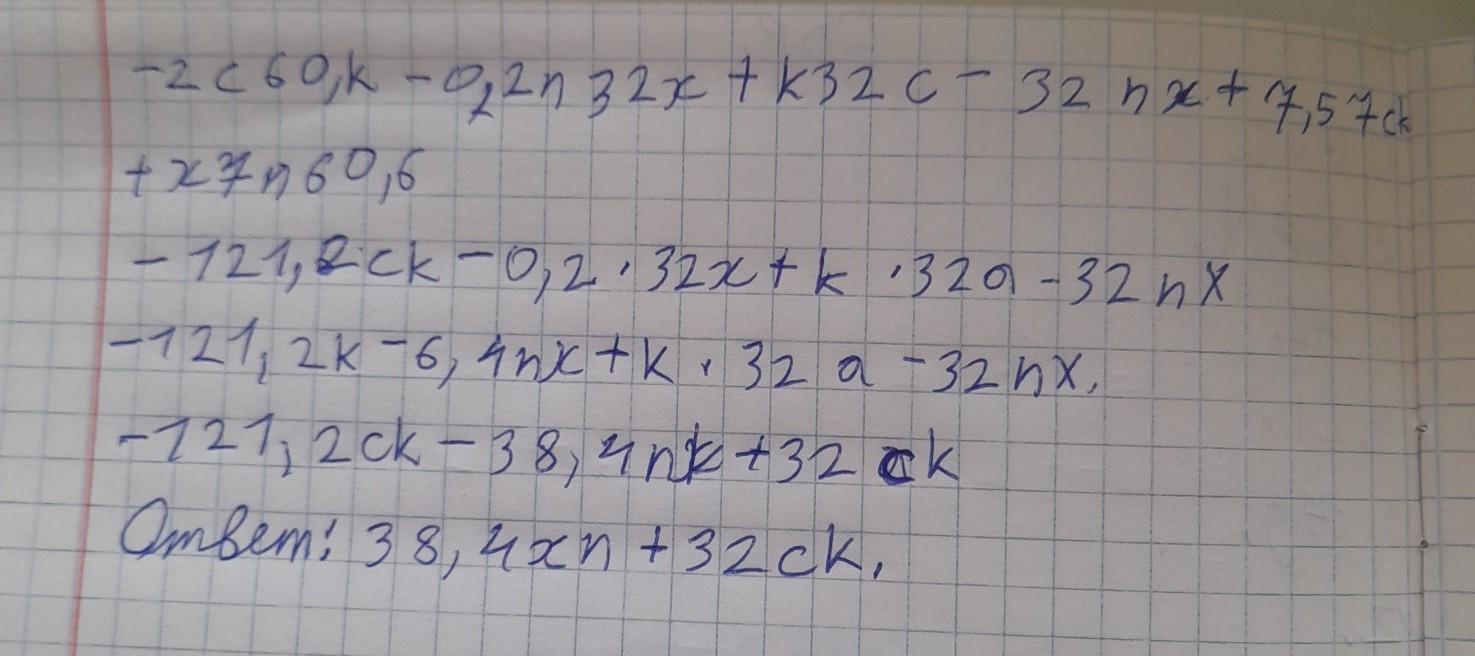 -2c60,k-0,2n32x+k32c-32nx+7,57ck
+x7n60,6
-121,2ck-0,2·32x+k·32a-32nx
-121,2k-6,4nx+k·32a-32nx.
-121,2ck-38,4nk+32ck
Ответ: 38,4xn+32ck.